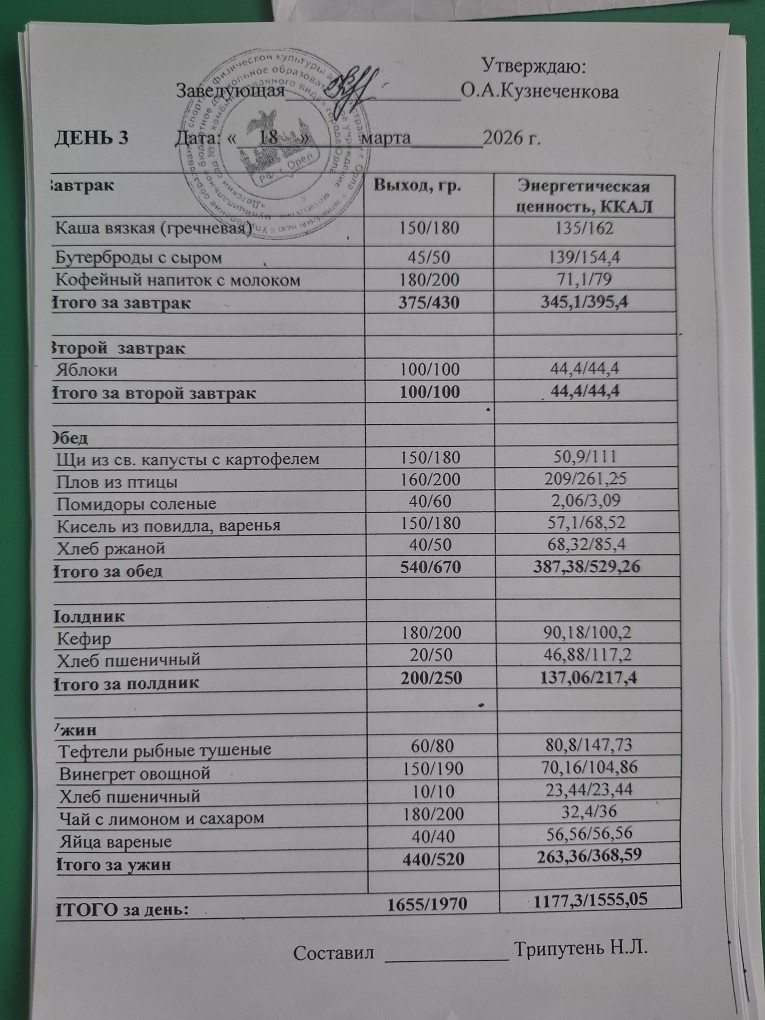 Утверждаю:
Заведующая______________О.А.Кузнеченкова
ДЕНЬ 3 Дата: «__18__»____марта________2026 г.
Завтрак Выход, гр. Энергетическая ценность, ККАЛ
Каша вязкая (гречневая) 150/180 135/162
Бутерброды с сыром 45/50 139/154,4
Кофейный напиток с молоком 180/200 71,1/79
Итого за завтрак 375/430 345,1/395,4
Второй завтрак
Яблоки 100/100 44,4/44,4
Итого за второй завтрак 100/100 44,4/44,4
Обед
Щи из св. капусты с картофелем 150/180 50,9/111
Плов из птицы 160/200 209/261,25
Помидоры соленые 40/60 2,06/3,09
Кисель из повидла, варенья 150/180 57,1/68,52
Хлеб ржаной 40/50 68,32/85,4
Итого за обед 540/670 387,38/529,26
Полдник
Кефир 180/200 90,18/100,2
Хлеб пшеничный 20/50 46,88/117,2
Итого за полдник 200/250 137,06/217,4
Ужин
Тефтели рыбные тушеные 60/80 80,8/147,73
Винегрет овощной 150/190 70,16/104,86
Хлеб пшеничный 10/10 23,44/23,44
Чай с лимоном и сахаром 180/200 32,4/36
Яйца вареные 40/40 56,56/56,56
Итого за ужин 440/520 263,36/368,59
ИТОГО за день: 1655/1970 1177,3/1555,05
Составил ___________ Трипутень Н.Л.